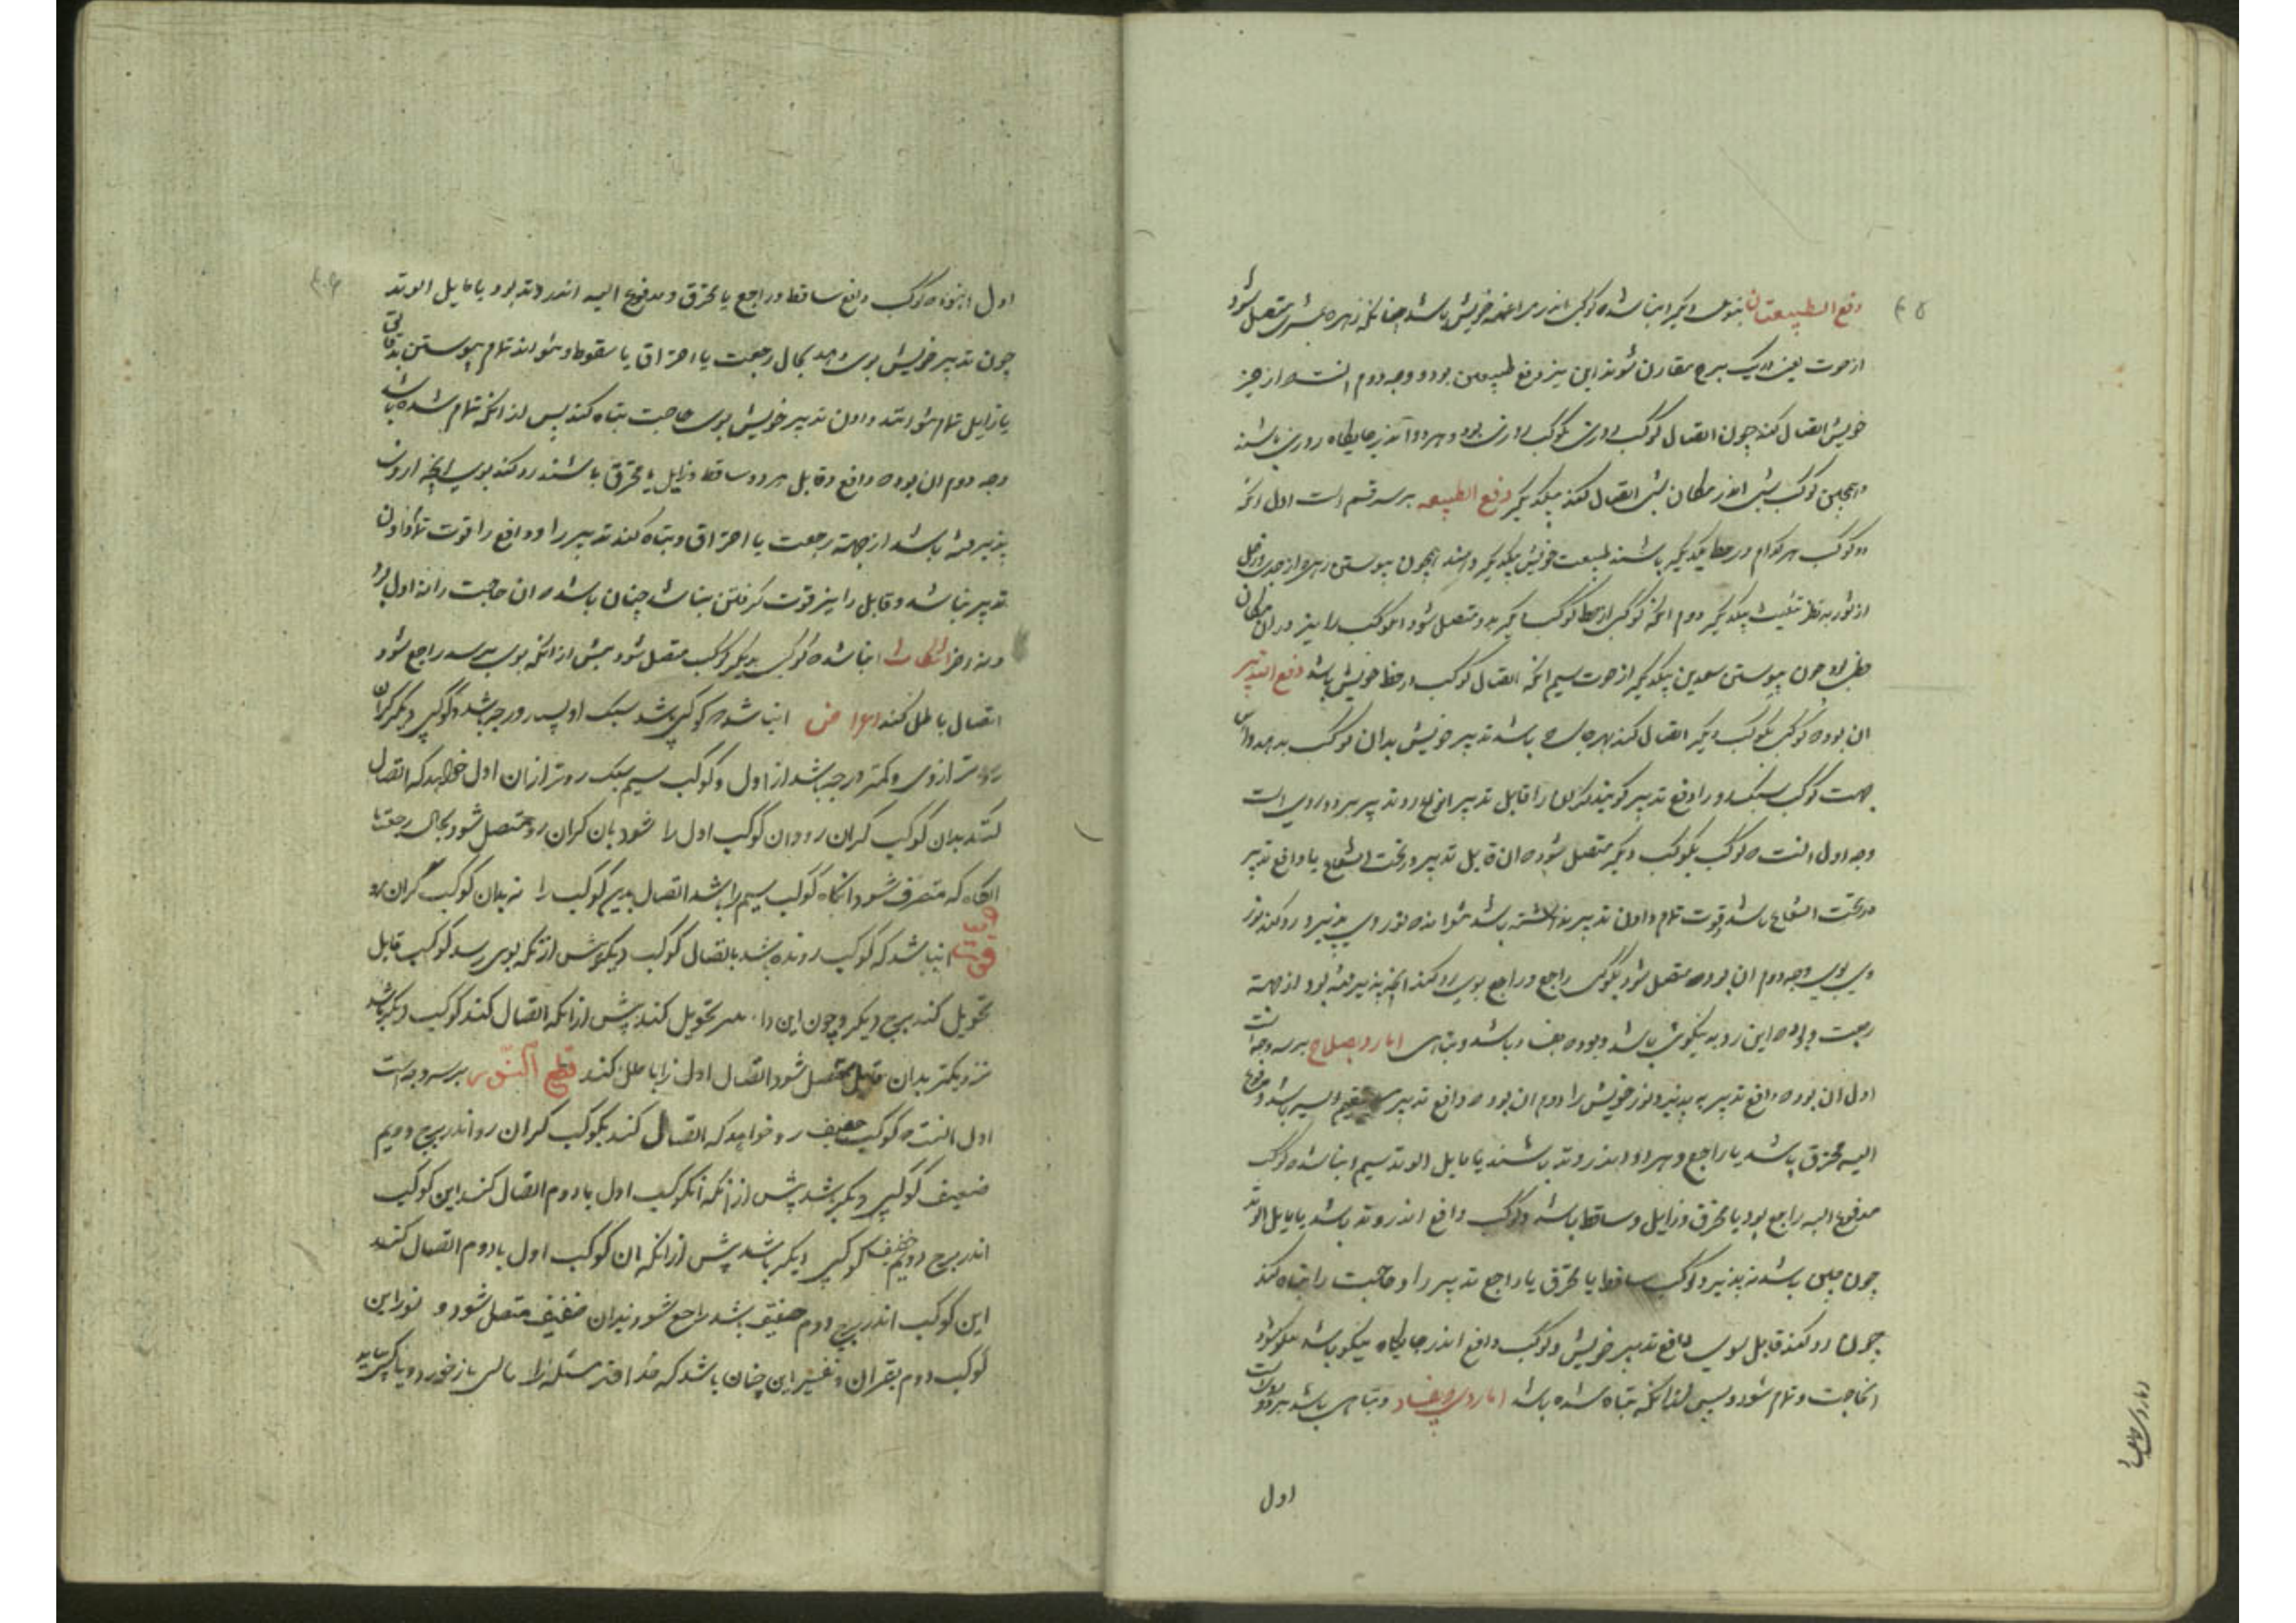 دفع الطبیعتان بنوعی دیگر انباشد که کوکبی اندر مراغمه خویش باشد چنانکه زهره بمشتری متصل شود
از حوت یعنی در یک برج مقارن شوند این نیز دفع طبیعتین بود و وجه دوم آنست از حیز
خویش اتصال کند چون اتصال کوکب روزی بکوکب روزی بود و هر دو اندر جایگاه روزی باشند
و همچنین کوکب شبی اندر مکان شبی اتصال کنند بیکدیگر دفع الطبیعه بر سه قسم است اول آنکه
دو کوکب هر کدام در حظ یکدیگر باشند طبیعت خویش بیکدیگر دهند همچون پیوستن زهره از جدی و زحل
از ثور به نظر تثلیث بیکدیگر دوم آنکه کوکبی از حظ کوکب دیگر بدو متصل شود آن کوکب را نیز در ان مکان
حظی بود چون پیوستن سعدین بیکدیگر از حوت سیم آنکه اتصال کوکب از حظ خویش باشد دفع التدبیر
ان بود که کوکبی بکوکب دیگر اتصال کند بهرجا که باشد تدبیر خویش بدان کوکب بدهد و از این
جهت کوکب سبک رو را دفع تدبیر گویند و گران رو را قابل تدبیر انواع رد تدبیر بر دو روی است
وجه اول آنست که کوکب بکوکب دیگر متصل شود که ان قابل تدبیر در تحت الشعاع یا دافع تدبیر
در تحت الشعاع باشد قوت تمام دادن تدبیر نداشته باشد نتواند که نور وی بپذیرد رد کند نور
وی بوی وجه دوم ان بود که متصل شود بکوکب راجع و راجع بوی رد کند آنچه پذیرفته بود از جهت
رجعت و بود که این رد به نیکوئی باشد و بود که بفساد باشد و تباهی اما رد بصلاح بر سه وجه است
اول ان بود که دافع تدبیر به پذیرد نور خویش را دوم ان بود که دافع تدبیر مستقیم السیر باشد و مدفوع
الیه محترق باشد یا راجع و هر دو اندر وتد باشند یا مایل الوتد سیم انباشد که کوکب
مدفوع الیه راجع بود یا محترق و زایل و ساقط باشد و کوکب دافع اندر وتد باشد یا مایل الوتد
چون چنین باشد نپذیرد کوکب ساقط یا محترق یا راجع تدبیر را و حاجت را تباه کند
چون رد کند قابل بوی دافع تدبیر خویش و کوکب دافع اندر جایگاه نیکو باشد نیکو شود
انحاجت و تمام شود و پس از انکه تباه شده باشد اما رد بفساد و تباهی باشد بر دو روی است
اول
اول انبود که کوکب دافع ساقط و راجع یا محترق و مدفوع الیه اندر وتد بود یا مایل الوتد
چون تدبیر خویش بوی دهد بحال رجعت یا احتراق یا سقوط و نتواند تمام پیوستن بقابل
یا زایل تمام نتواند دادن تدبیر خویش بوی حاجت تباه کند پس از انکه تمام شده باشد
وجه دوم ان بود که دافع و قابل هر دو ساقط و زایل یا محترق باشند رد کند بوی آنچه از وی
پذیرفته باشد از جهت رجعت یا احتراق و تباه کند تدبیر را و دافع را قوت تمام دادن
تدبیر نباشد و قابل را نیز قوت گرفتن نباشد چنان باشد که ان حاجت را نه اول بود
و نه آخر انتکاث انباشد که کوکبی بدیگر کوکب متصل شود پیش از انکه بوی برسد راجع شود
اتصال باطل کند اعراض انباشد که کوکبی باشد سبک رو بسیار درجه باشد و کوکبی دیگر گران
رو تر از وی و کمتر درجه باشد از اول و کوکب سیم سبک رو تر از ان اول خواهد که اتصال
کند بدان کوکب گران رو و ان کوکب اول را شود بان گران رو متصل شود بحال رجعت تا
انگاه که منصرف شود انگاه کوکب سیم را باشد اتصال بدین کوکب را نه بدان کوکب گران رو
فوت انباشد که کوکب رونده باشد باتصال کوکب دیگر و پیش از انکه بوی رسد کوکب قابل
تحویل کند ببرج دیگر و چون این دافع نیز تحویل کند پیش از انکه اتصال کند کوکب دیگر باشد
نزدیکتر بدان قابل متصل شود اتصال اول را باطل کند قطع النور بر سه وجه است
اول انست که کوکب خفیف رو خواهد که اتصال کند بکوکب گران رو اندر برج دویم
ضعیف کوکبی دیگر باشد پیش از انکه انکوکب اول با دوم اتصال کند این کوکب
اندر برج دویم خفیف کوکبی دیگر باشد پیش از انکه ان کوکب اول با دوم اتصال کند
این کوکب اندر برج دوم خفیف باشد راجع شود بدان خفیف متصل شود و نور این
کوکب دوم بقران و تفسیر این چنان باشد که خداوند مسئله را مالی باز خورد و یا کسی باید